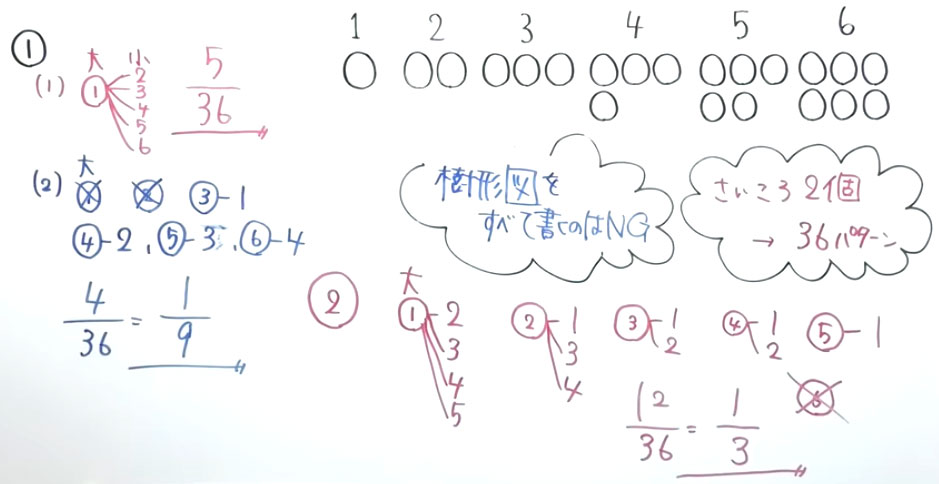 ①
(1) 大 小
① 2
3
4
5
6
5/36
(2) 大
① ② ③-1
④-2、⑤-3、⑥-4
4/36 = 1/9
1 2 3 4 5 6
樹形図を
すべて書くのはNG
さいころ2個
→ 36パターン
② 大
①-2 ②-1 ③-1 ④-1 ⑤-1
3 3 2 2
4 4
5
⑥
12/36 = 1/3